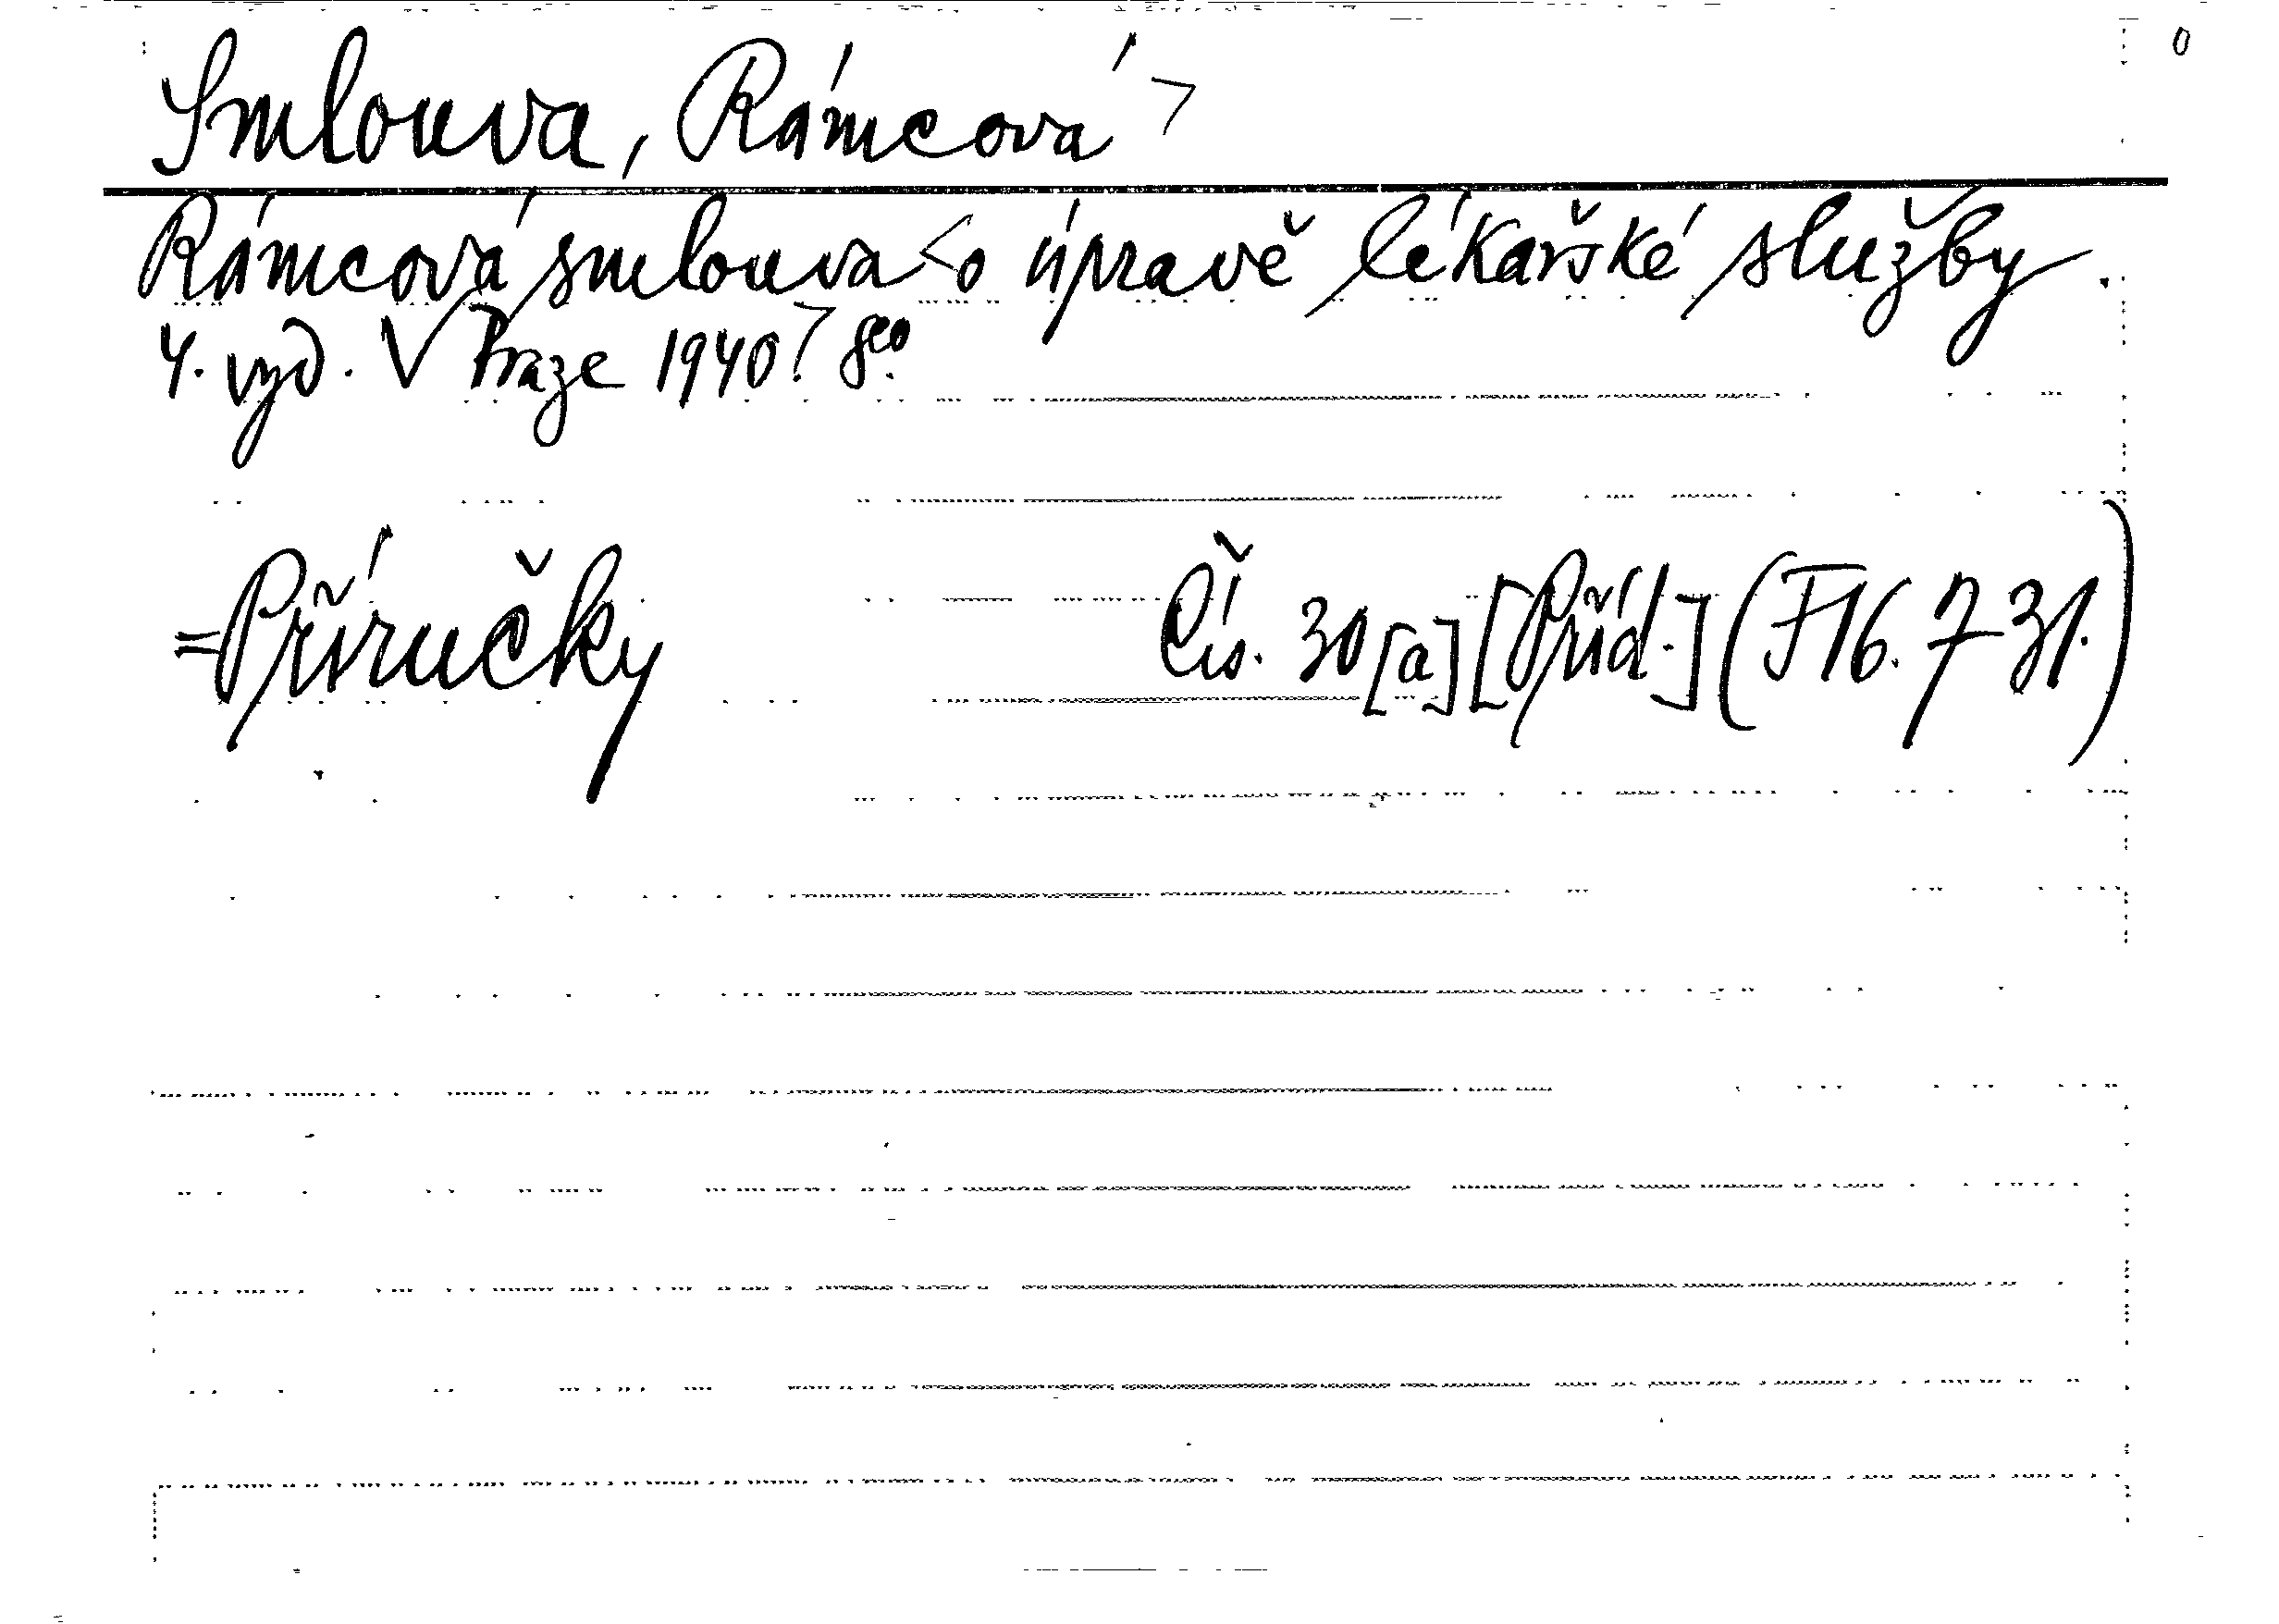 Smlouva, Rámcová ⁊ 0
Rámcová smlouva < o úpravě lékařské služby.
4. vyd. V Praze 1940. ⁊ 8°.
=Příručky Čís. 30[a][Příd.](F16.731.)